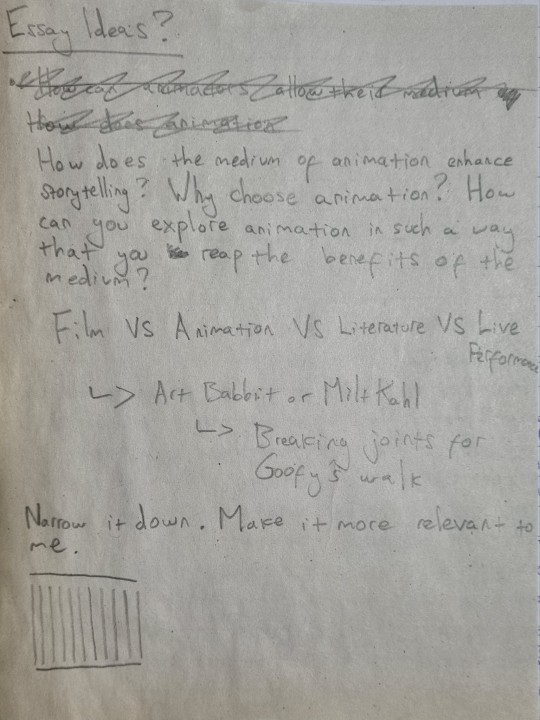 Essay Ideas?
How can animators allow their medium
How does animation
How does the medium of animation enhance
storytelling? Why choose animation? How
can you explore animation in such a way
that you reap the benefits of the
medium?
Film VS Animation VS Literature VS Live
Performance
↳ Art Babbit or Milt Kahl
↳ Breaking joints for
Goofy's walk
Narrow it down. Make it more relevant to
me.